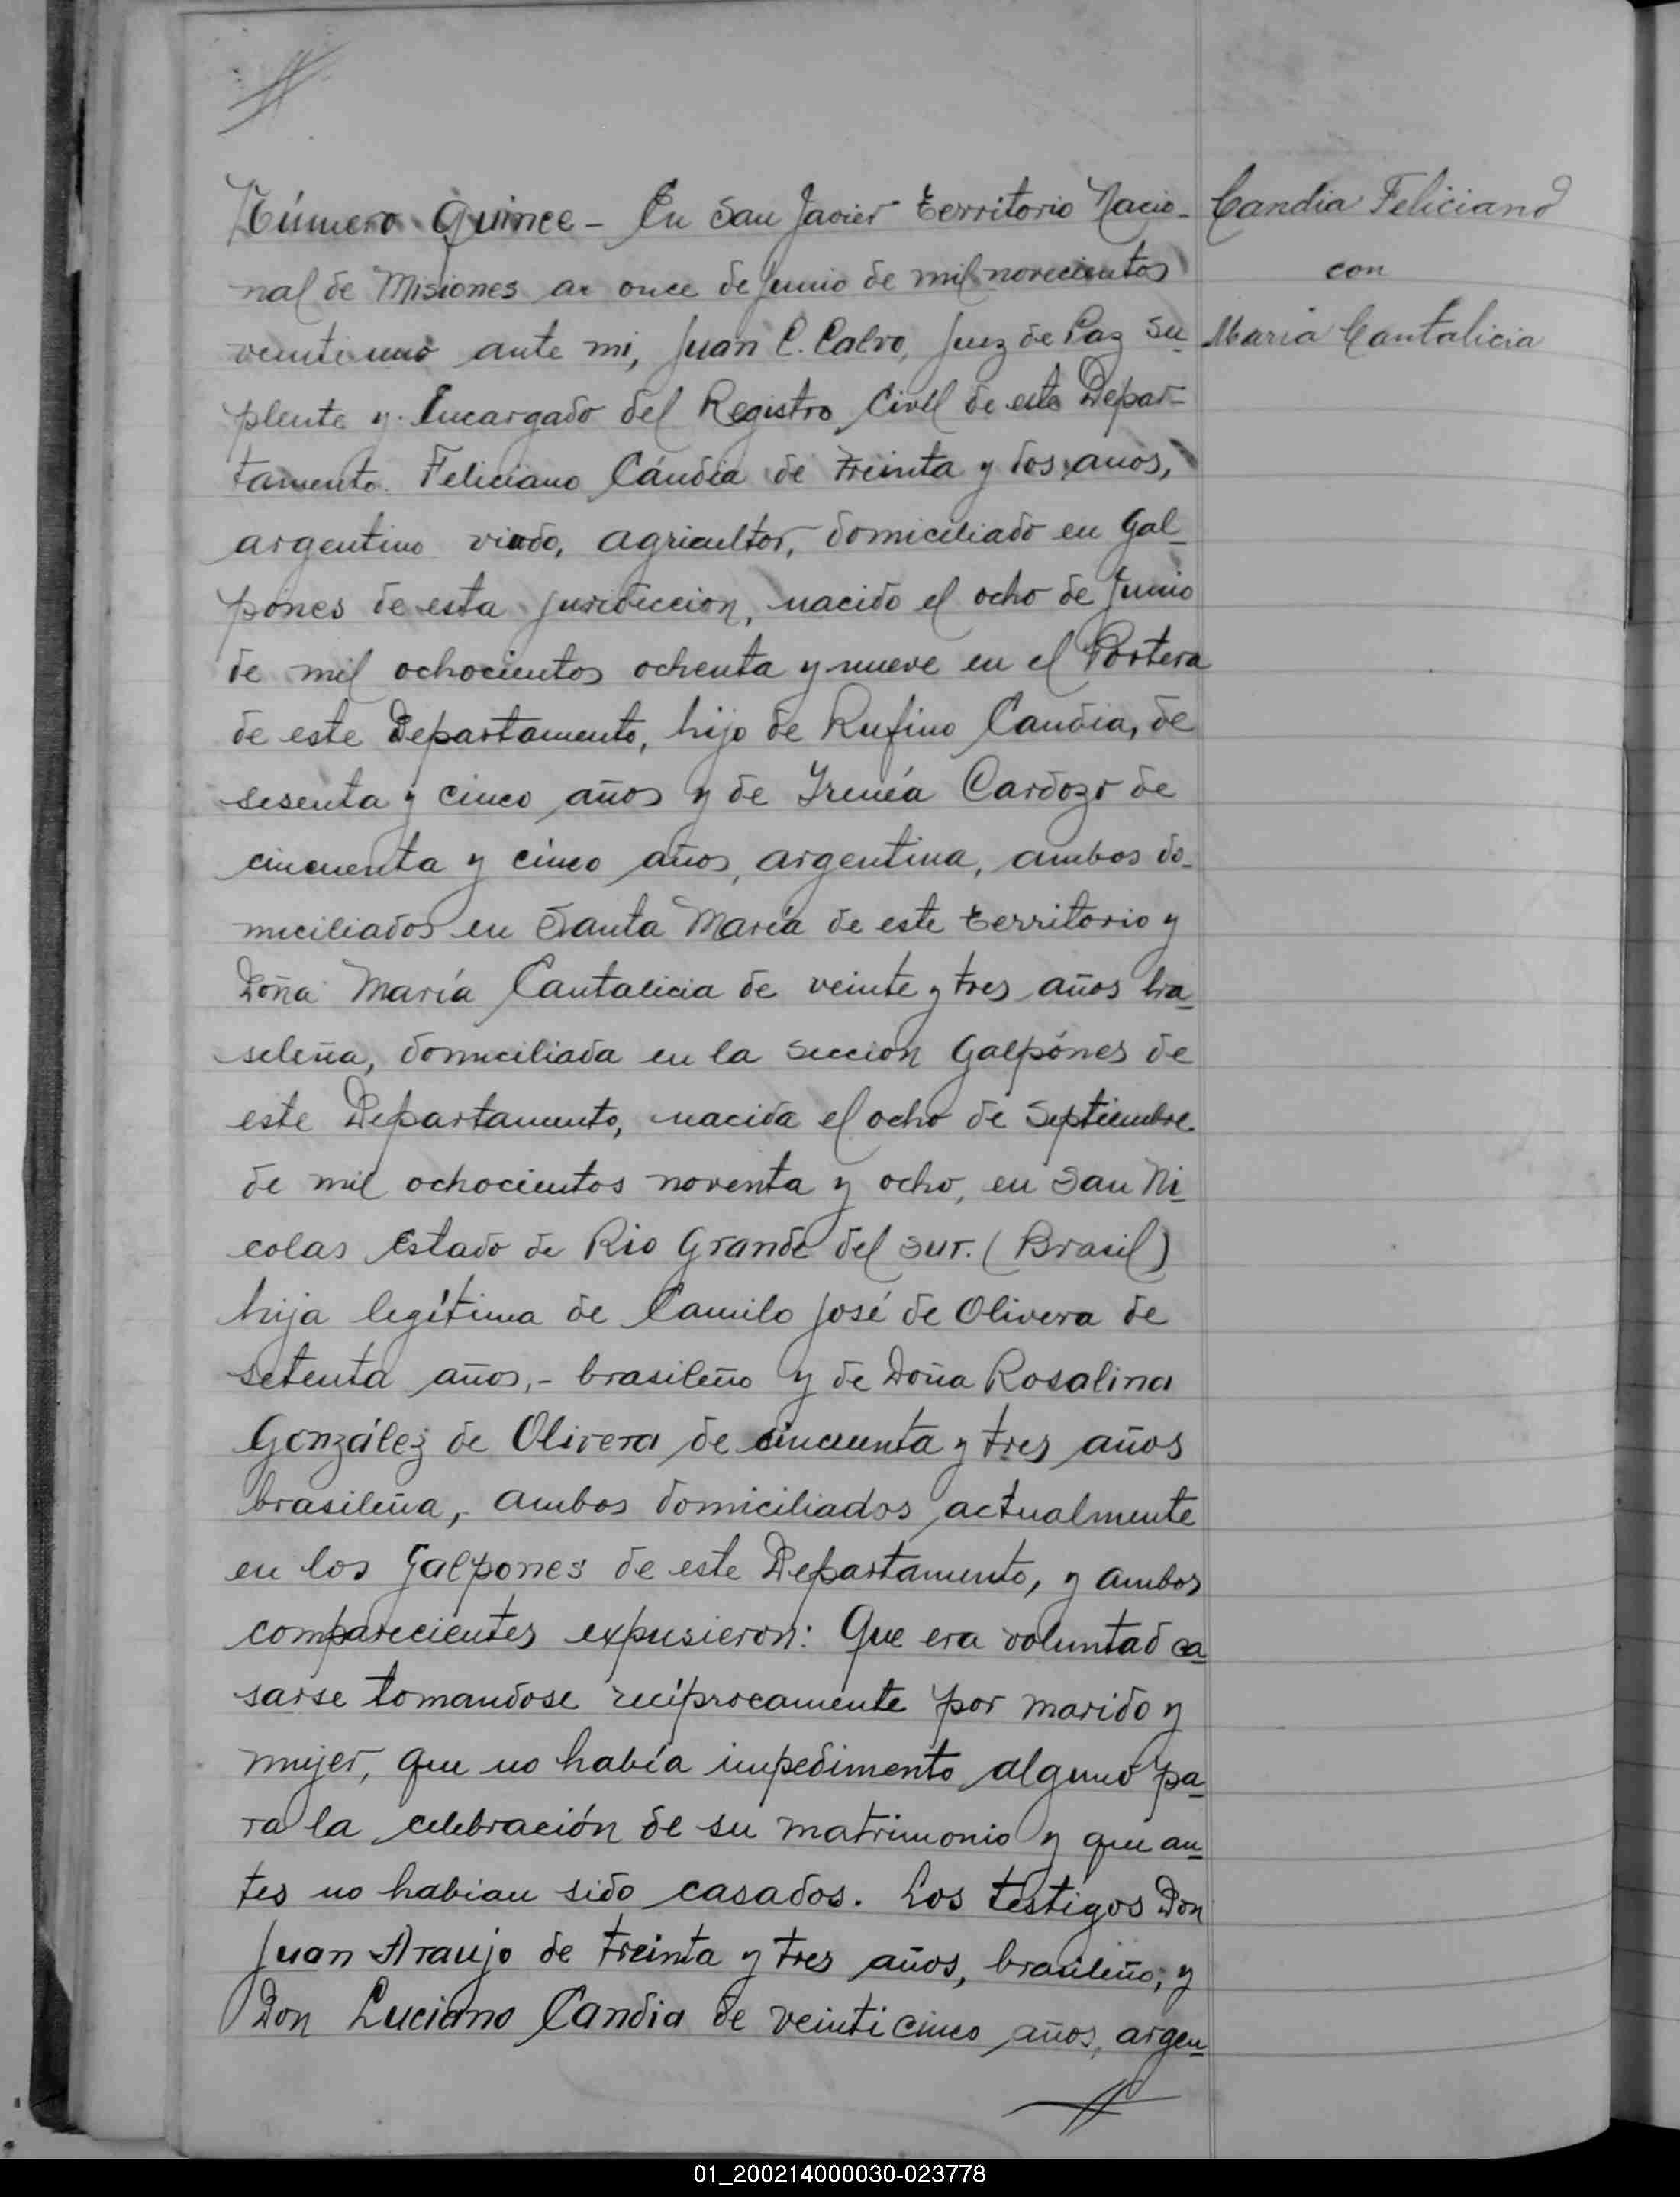 Número Quince - En San Javier territorio Nacio-
nal de Misiones a once de Junio de mil novecientos
veinte uno ante mi, Juan C. Calvo, Juez de Paz Su-
plente y Encargado del Registro Civil de este Depar-
tamento. Feliciano Cándia de treinta y dos anos,
argentino viudo, agricultor, domiciliado en Gal-
pones de esta jurisdiccion, nacido el ocho de Junio
de mil ochocientos ochenta y nueve en el Portera
de este Departamento, hijo de Rufino Candia, de
sesenta y cinco años y de Irenéa Cardozo de
cincuenta y cinco años, argentina, ambos do-
miciliados en Santa María de este territorio y
Doña María Cantalicia de veinte y tres años bra-
seleña, domiciliada en la seccion Galpónes de
este Departamento, nacida el ocho de Septiembre
de mil ochocientos noventa y ocho, en San Ni-
colas Estado de Rio Grande del sur. (Brasil)
hija legítima de Camilo José de Olivera de
setenta años,- brasileño y de Doña Rosalina
González de Olivera de cincuenta y tres años
brasileña, ambos domiciliados actualmente
en los Galpones de este Departamento, y ambos
comparecientes expusieron: Que era voluntad ca-
sarse tomandose recíprocamente por marido y
mujer, que no había impedimento alguno pa-
ra la celebración de su matrimonio y que an-
tes no habian sido casados. Los testigos Don
Juan Araujo de treinta y tres años, brasileño, y
Don Luciano Candia de veinticinco años, argen-
Candia Feliciano
con
Maria Cantalicia
01_200214000030-023778